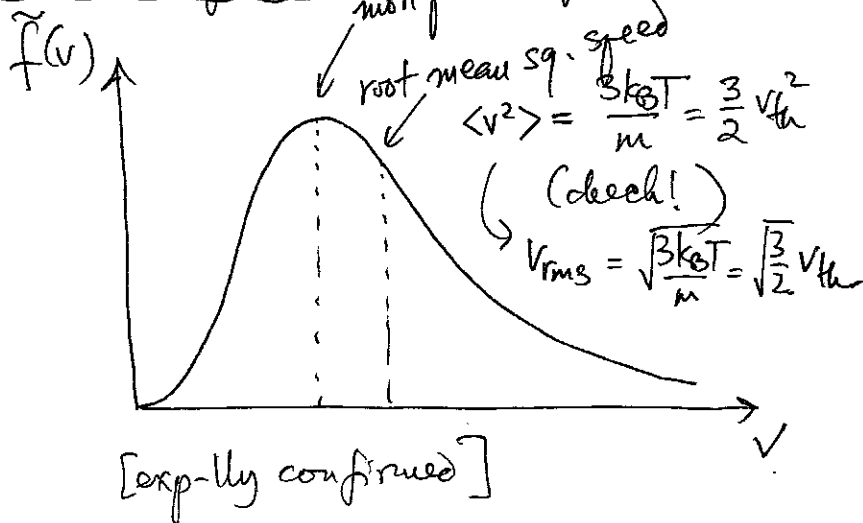 f̃(v)
root mean sq. speed
<v²> = 3k_BT/m = 3/2 v_th²
(check!)
v_rms = √(3k_BT/m) = √(3/2) v_th
v
[exp-lly confirmed]